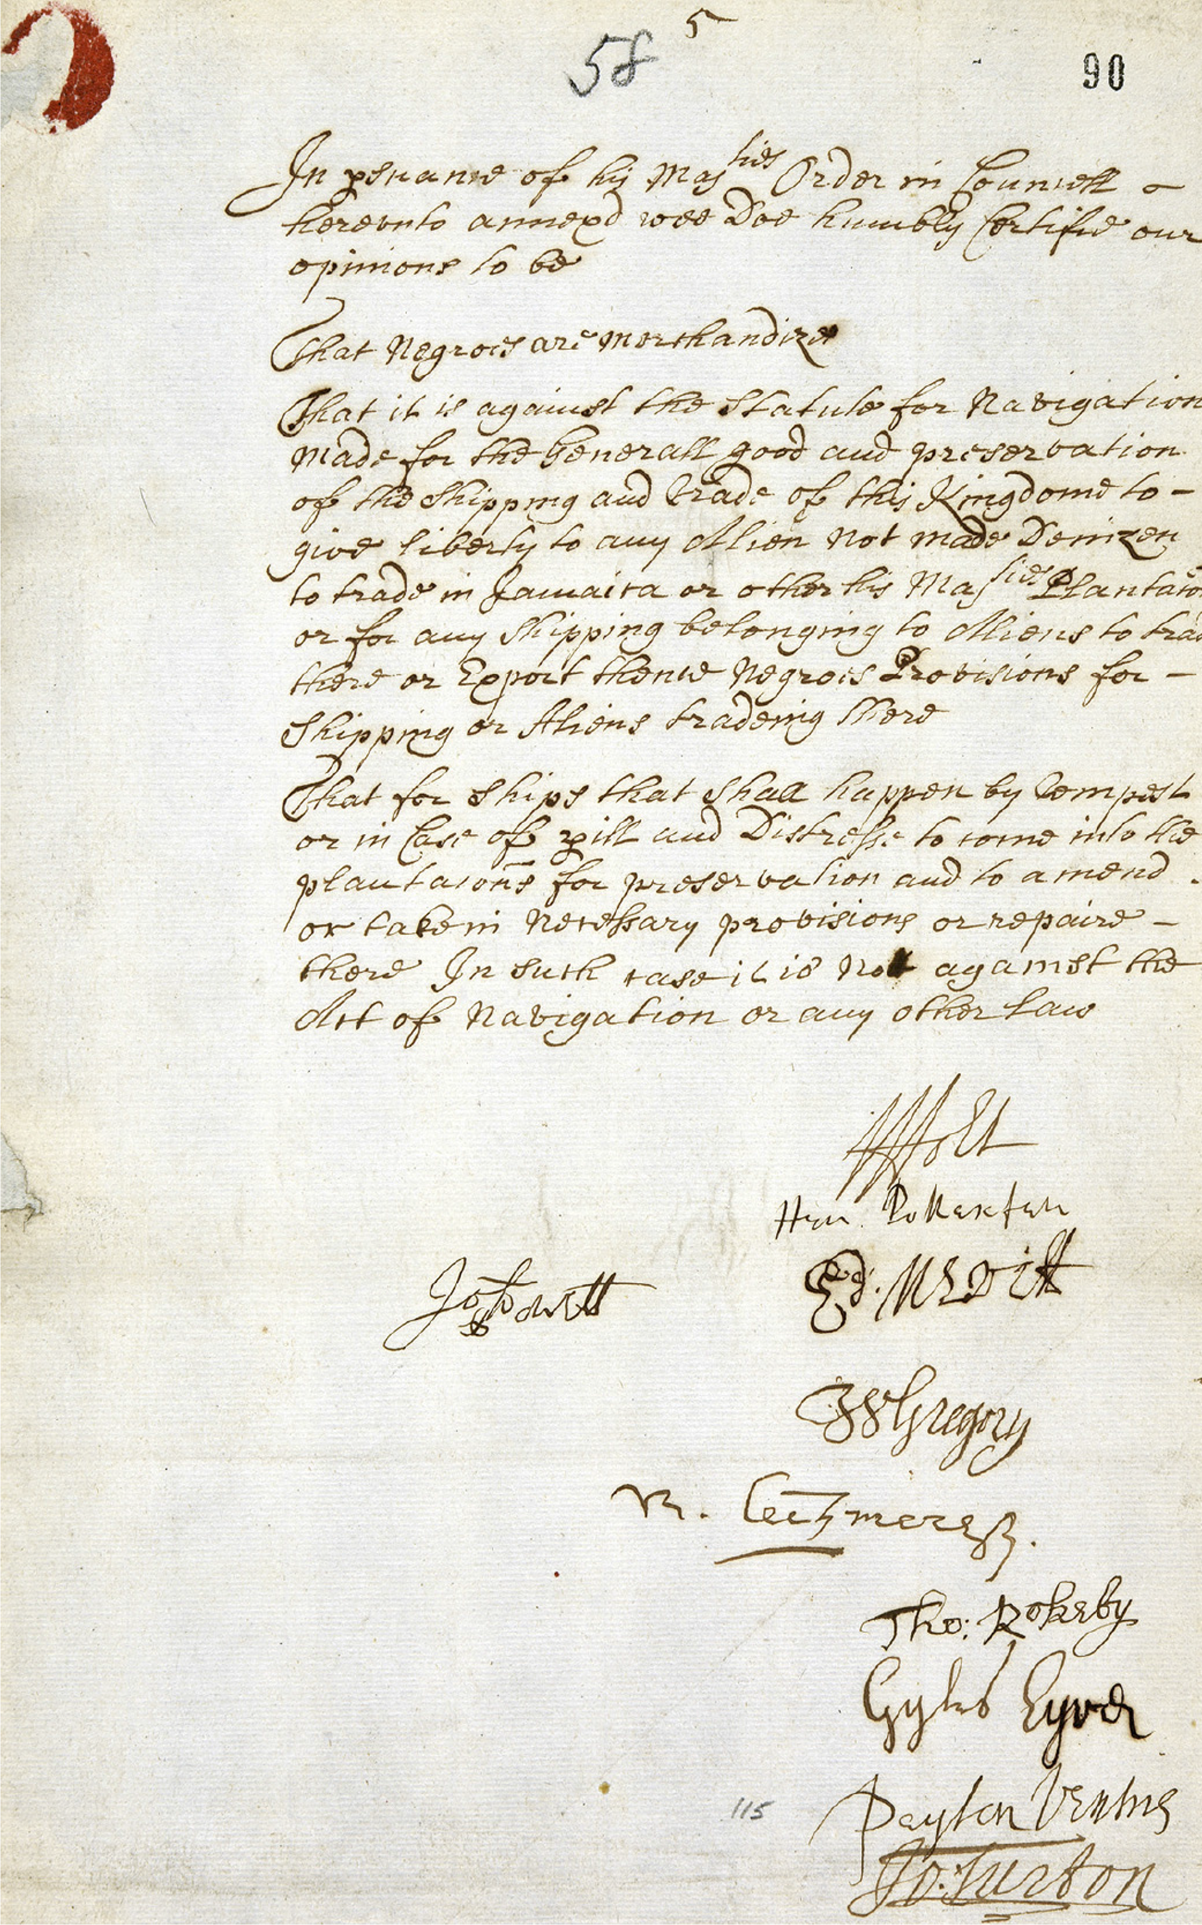 5
58
90
In psuance of his Maj ties Order in Councell
hereunto annexd wee Doe humbly Certifie our
opinions to be
That Negroes are Merchandize
That it is against the Statute for Navigation
Made for the Generall good and preservation
of the Shipping and Trade of this Kingdome to -
give liberty to any Alien Not made Denizen
to trade in Jamaica or other his Maj ties Plantacõ
or for any Shipping belonging to Aliens to trad
there or Export thence Negroes Provisions for -
Shipping or Aliens tradeing there
That for Ships that shall happen by Tempest
or in Case of pill and Distresse to come into the
plantacons for preservation and to amend
or take in Necessary provisions or repaire -
there In such case it is Not against the
Act of Navigation or any other Law
JHolt
Hen. Pollexfen
Jo Powell
Ed: Nevill
W Gregory
N. Lechmere
Tho: Rokeby
Gyles Eyre
Peyton Ventris
Jo: Turton
115